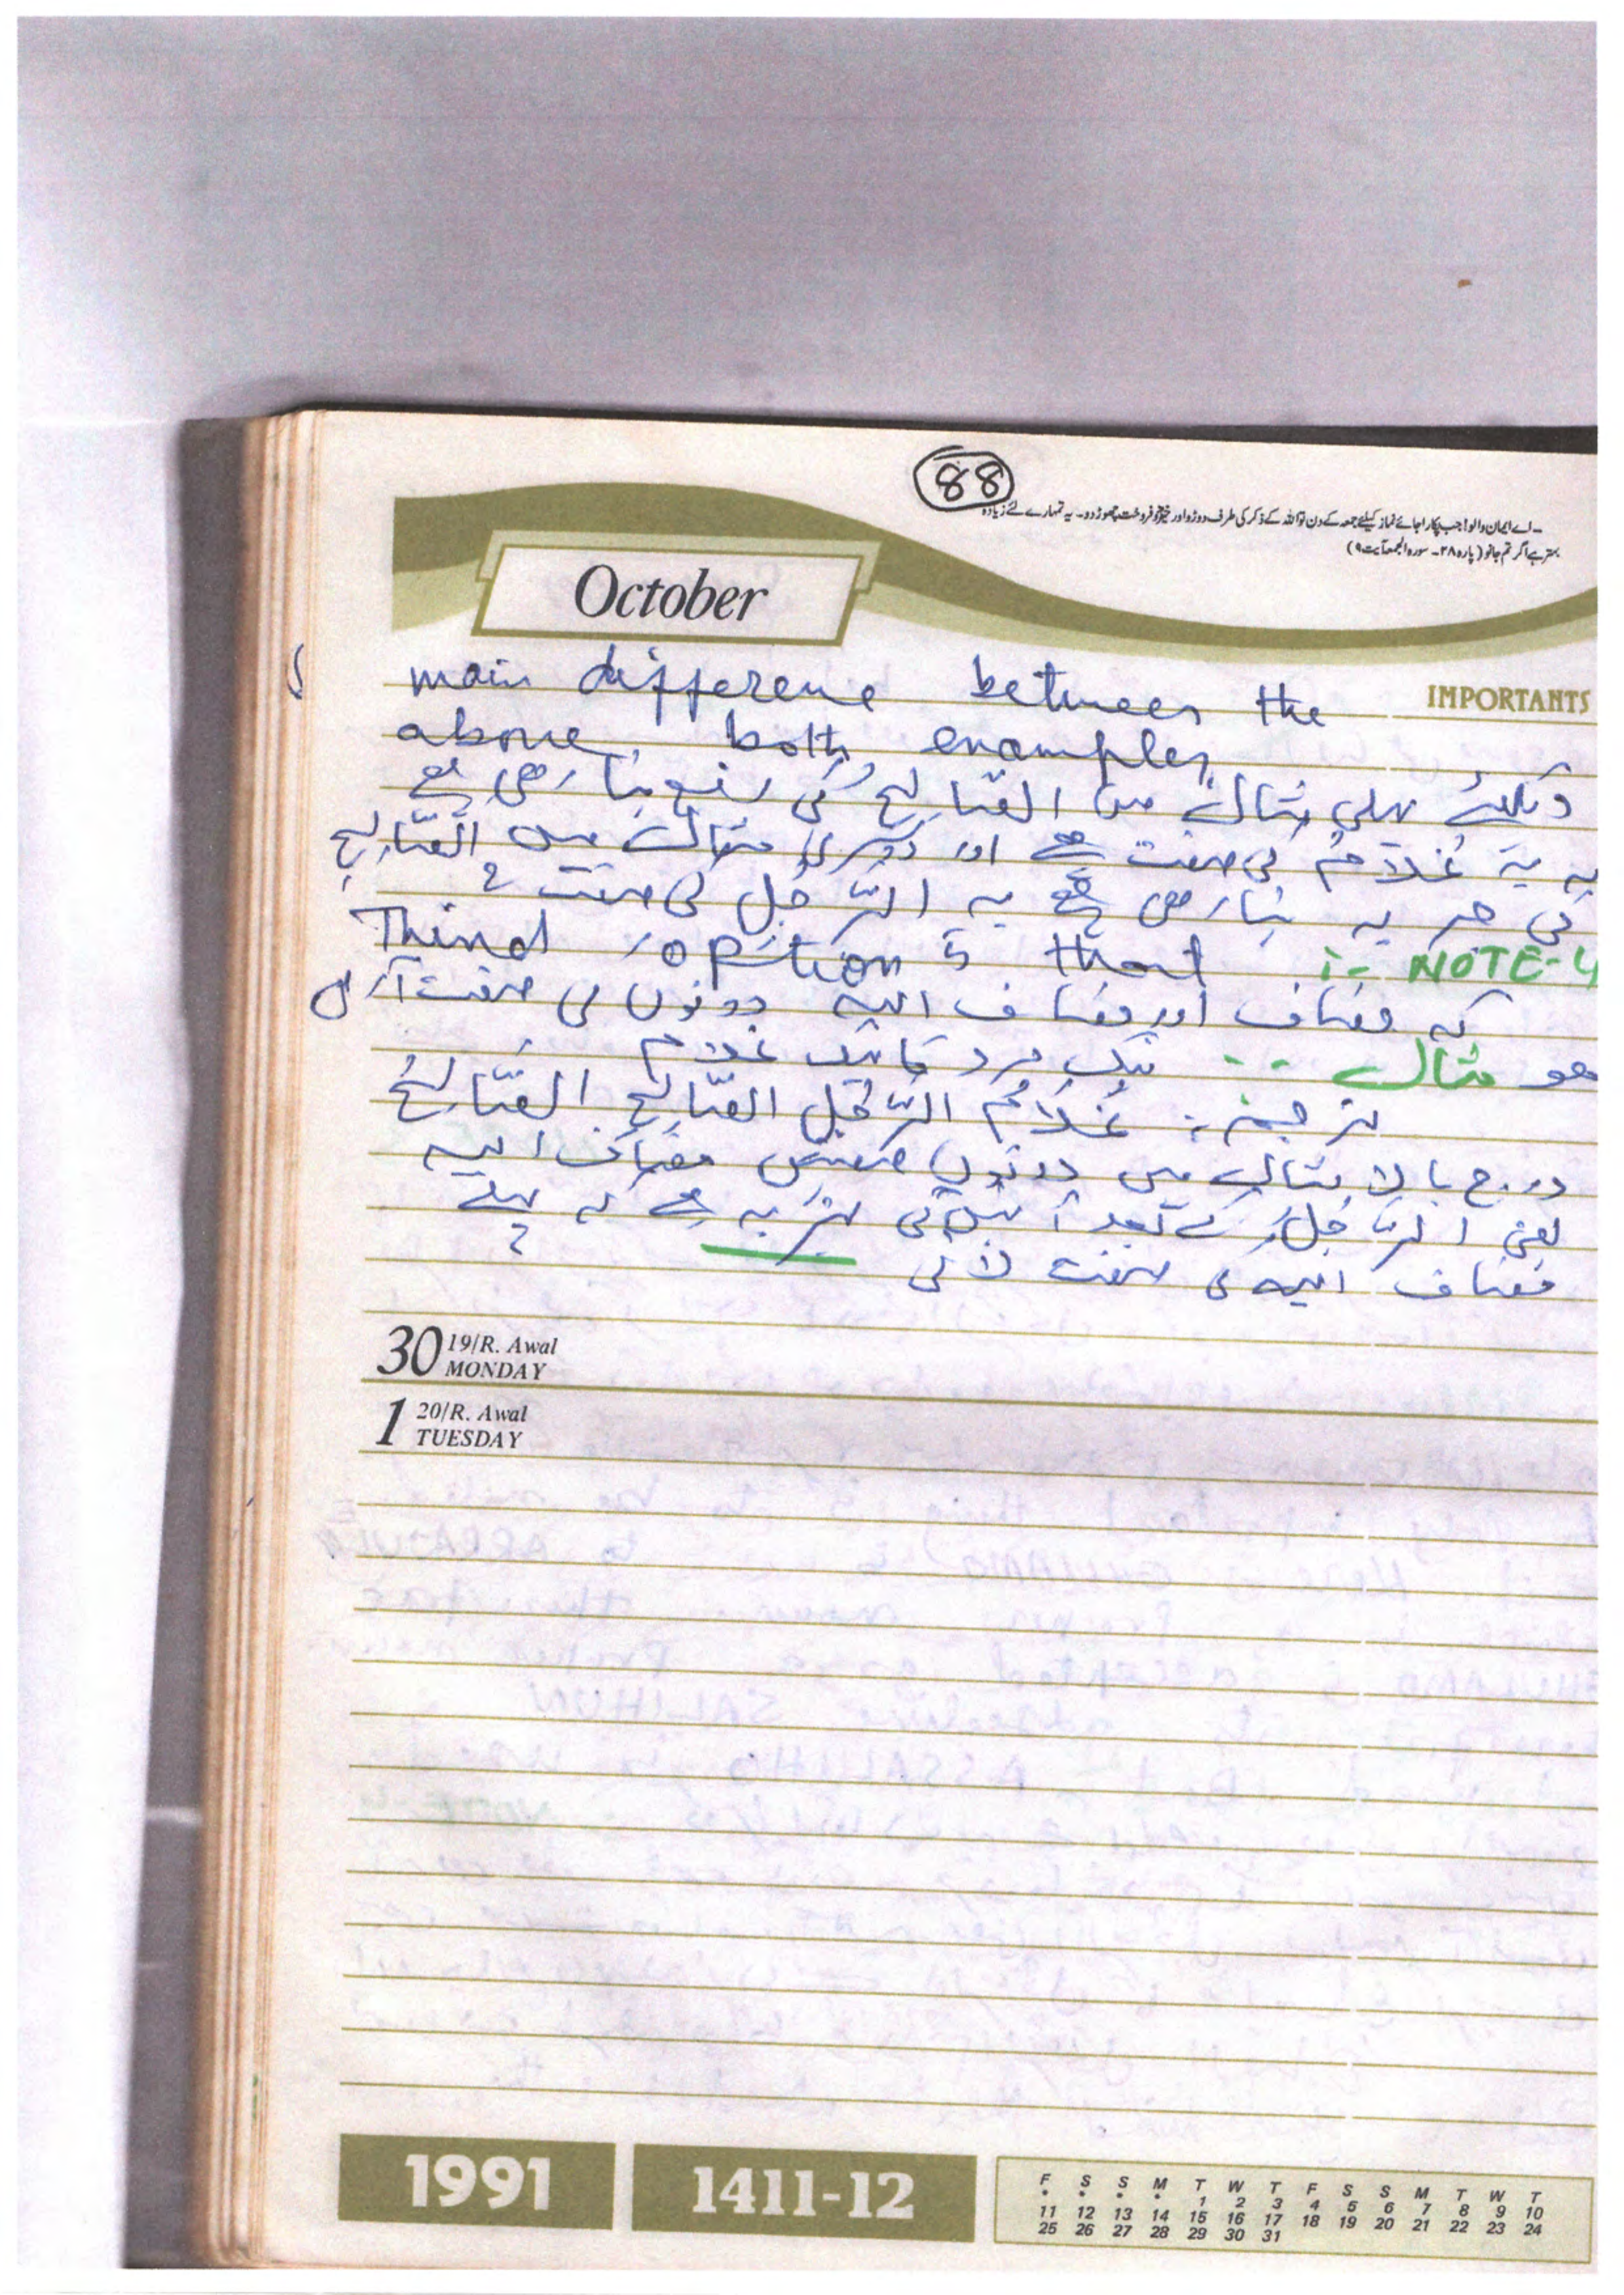 88
۔ اے ایمان والو! جب پکارا جائے نماز کیلئے جمعہ کے دن تو اللہ کے ذکر کی طرف دوڑو اور خرید و فروخت چھوڑ دو۔ یہ تمہارے لئے زیادہ
بہتر ہے اگر تم جانو (پارہ ۲۸۔ سورہ الجمعۃ آیت ۹)
October
IMPORTANTS
main difference between the
above both examples
دیکھئے پہلی مثال میں الصّالحُ کی رفع بتا رھی ھے
کہ یہ غُلَامُ کی صفت ھے اور دوسری مثال میں الصّالحِ
کی جر یہ بتا رھی ھے یہ الرّجُلِ کی صفت ہے
NOTE-4 :- Third option is that
کہ مضاف اور مضاف الیہ دونوں کی صفت آ رہی
ھو مثال :- نیک مرد کا نیک غلام
ترجمہ: غُلَامُ الرَّجُلِ الصَّالحِ الصَّالحُ
درج بالا مثال میں دونوں صفتیں مضاف الیہ
یعنی الرّجُلِ کے بعد آئیں گی بہتر یہ ہے کہ پہلے
مضاف الیہ کی صفت لائی
30 19/R. Awal
MONDAY
1 20/R. Awal
TUESDAY
1991 1411-12
F S S M T W T F S S M T W T
• • • • 1 2 3 4 5 6 7 8 9 10
11 12 13 14 15 16 17 18 19 20 21 22 23 24
25 26 27 28 29 30 31